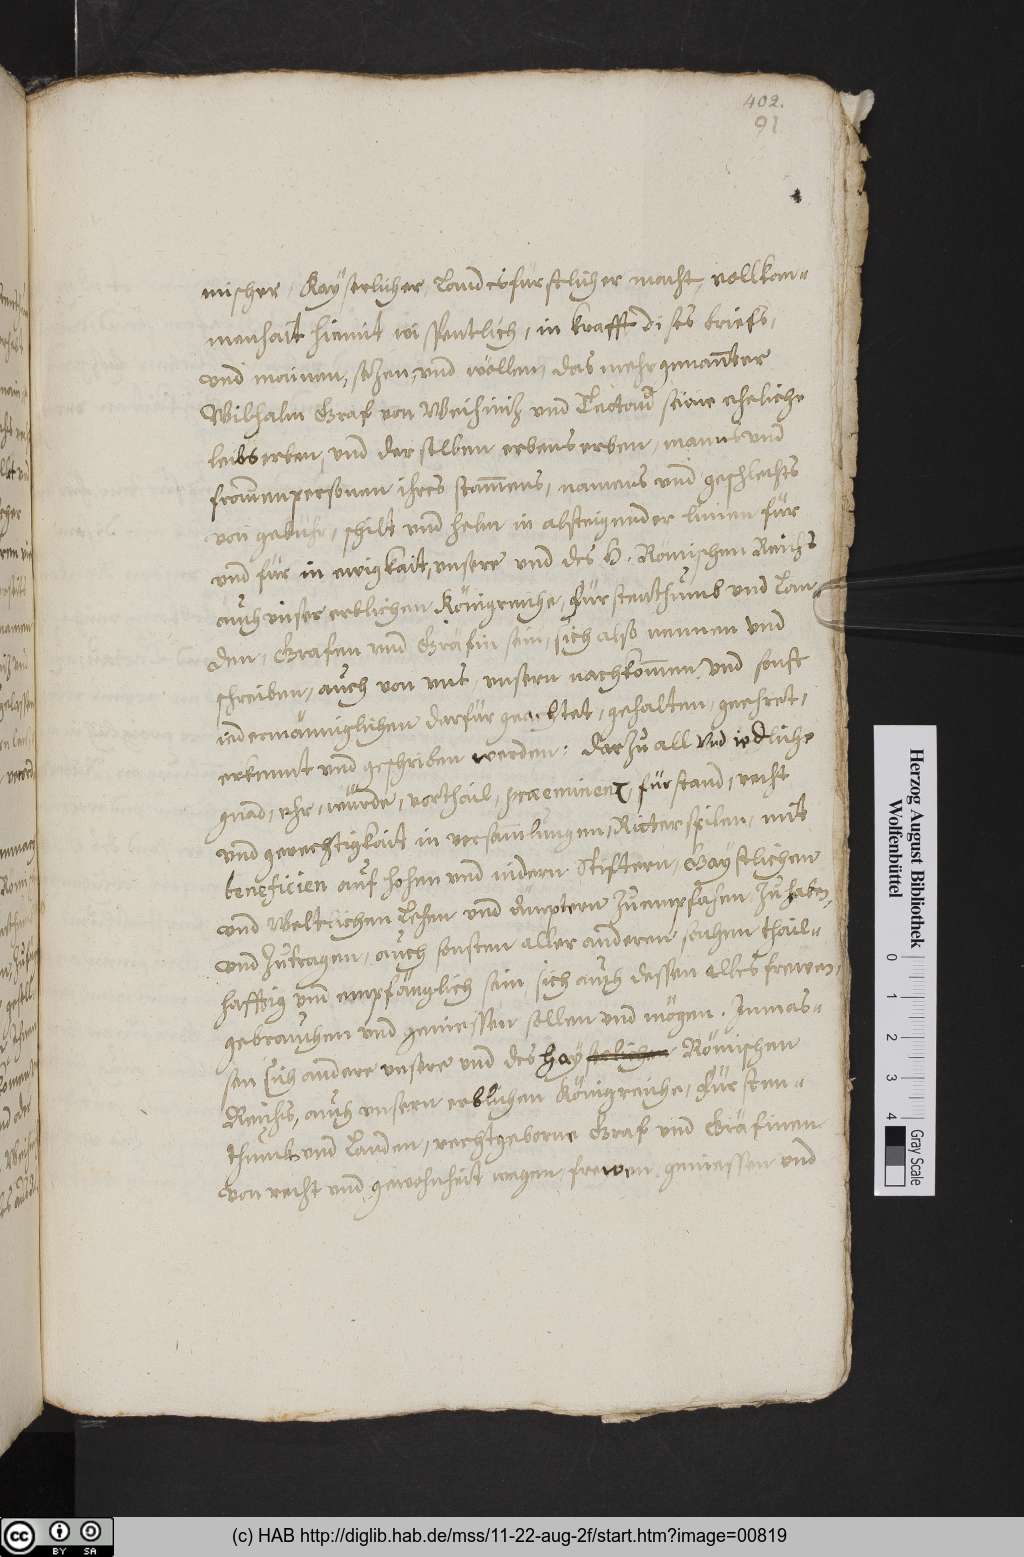 402.
91
mischer, Kaÿserlicher, Landesfürstlicher macht, vollkom=
menhait hiemit wissentlich, in krafft dises briefs,
und mainen, sezen, und wöllen, das mehrgenannter
Wilhalm Graf von und seine eheliche
leibs erben, und derselben erbens erben, manns und
frawen personen ihres stammens, namens und geschlechts
von geburt, schilt und helm in absteigender linien für
und für in ewigkait, unsere und des H. Römischen Reichs
auch unser erblichen Königreiche, Fürstenthumb und Lan
den, Grafen und Gräfin sein, sich also nennen und
schreiben, auch von uns, unsern nachkommen und sonst
iedermänniglichen darfür geachtet, gehalten, geehret,
erkennt und geschriben werden: darzu all und iedliche
gnad, ehr, würde, vorthail, praeminenz, fürstand, recht
und gerechtigkait in versammlungen, Ritterspilen, mit
beneficien auf hohen und nidern Stifftern, Gaÿstlichen
und Weltlichen Lehen und ämptern zu empfahen, zu haben,
und zutragen, auch sonsten aller anderer sachen thail=
hafftig und empfänglich sein sich auch dessen alles frewen,
gebrauchen und geniessen sollen und mögen. Inmas=
sen sich andere unsere und des Römischen
Reichs, auch unsern erblichen Königreiche, Fürsten=
thumb und Landen, rechtgeborne Graf und Gräfinen
von recht und gewohnheit wegen, frewen, geniessen und
Herzog August Bibliothek
Wolfenbüttel
0 1 2 3 4
Gray Scale
cc BY SA
(c) HAB http://diglib.hab.de/mss/11-22-aug-2f/start.htm?image=00819